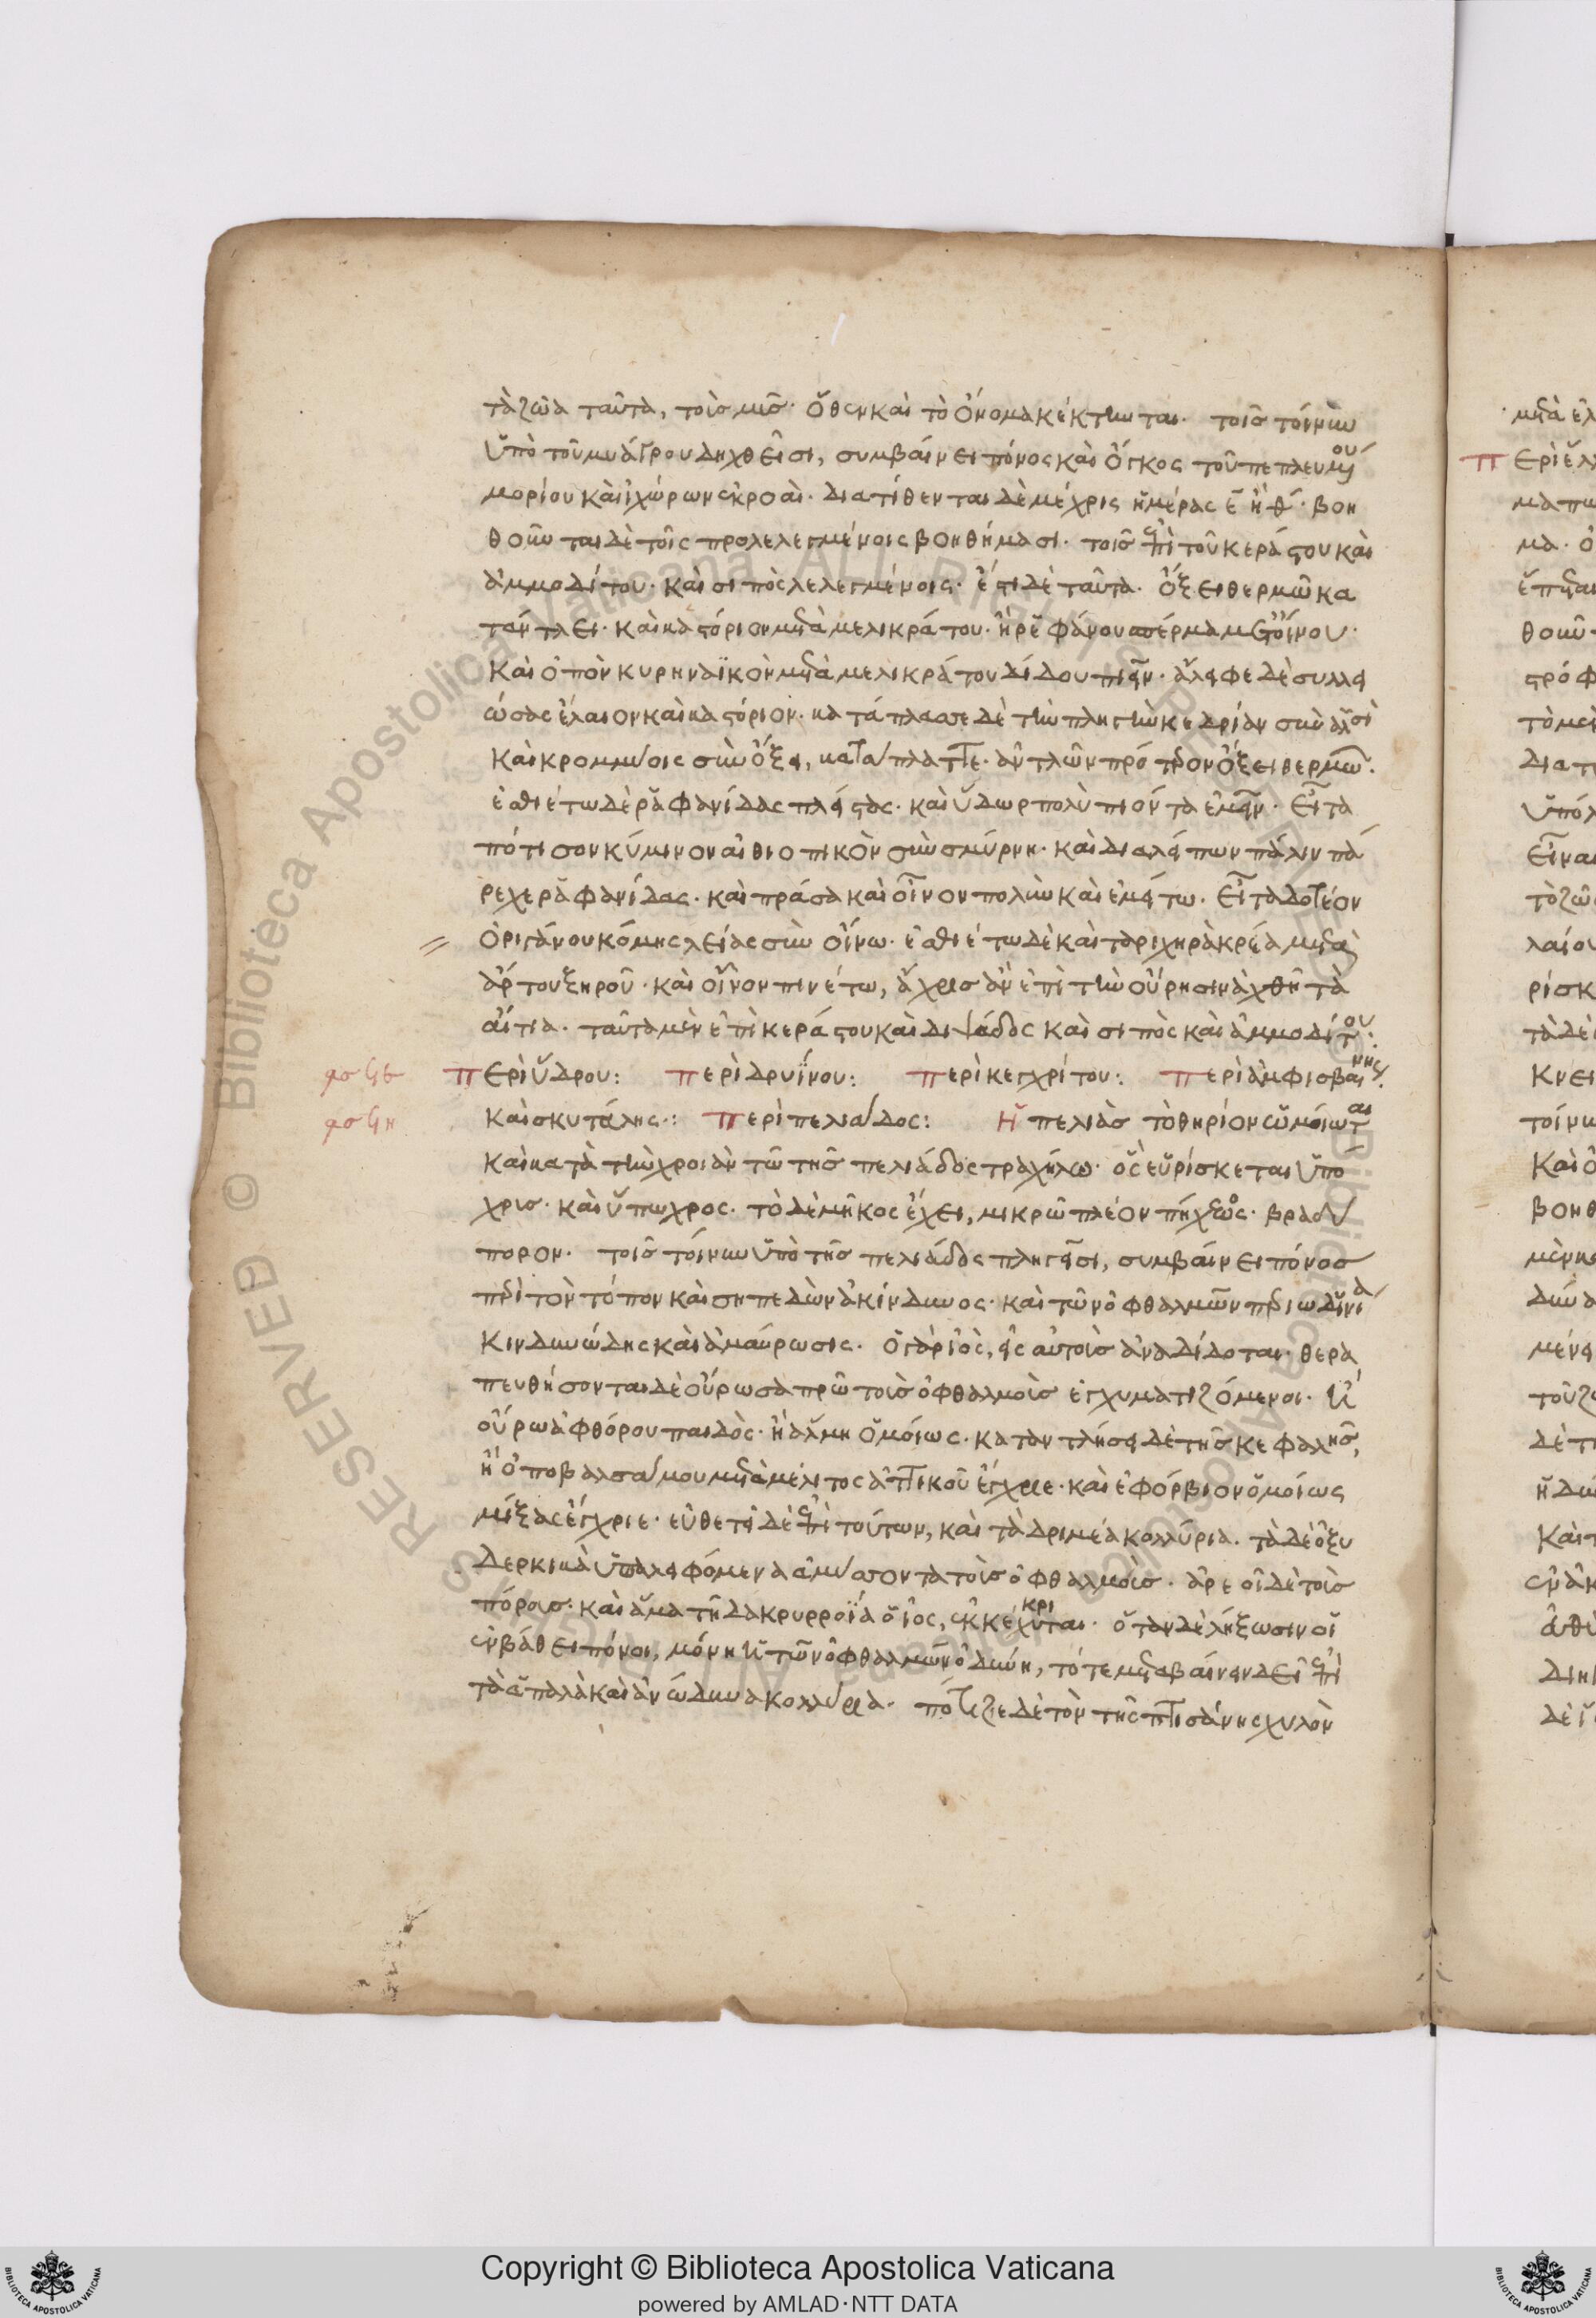 τὰ ζῶα ταῦτα, τοῖς μυσ. ὅθεν καὶ τὸ ὄνομα κέκτηνται. τοῖς τοίνυν
ὑπὸ τοῦ μυάγρου δηχθεῖσι, συμβαίνει πόνος καὶ ὄγκος τοῦ πεπλευμένου
μορίου καὶ ἰχώρων ἐκροαί. διατίθενται δὲ μέχρις ἡμέρας ζ ἢ θ. βοη
θοῦνται δὲ τοῖς προλελεγμένοις βοηθήμασι. τοῖς ἐπὶ τοῦ κεράστου καὶ
ἀμμοδίτου. καὶ σιπὸς λελεγμένοις. ἔστι δὲ ταῦτα. ὄξει θερμῶ κα
τάντλει. καὶ καστόριον μετὰ μελικράτου. ἢ ρεφάνου σπέρμα μετ οἴνου.
καὶ ὀπὸν κυρηναϊκὸν μετὰ μελικράτου δίδου πιεῖν. ἄλειφε δὲ συλλει
ώσας ἔλαιον καὶ καστόριον. κατάπλασσε δὲ τὴν πληγὴν κεδρίαν σὺν ἁλσὶ
καὶ κρομμύοις σὺν ὄξει, κατάπλαττε. ἀντλῶν πρότερον ὄξει θερμῶ.
ἐσθιέτω δὲ ραφανίδας πλείστας. καὶ ὕδωρ πολὺ πιόντα ἐμεῖν. εἶτα
πότισον κύμινον αἰθιοπικὸν σὺν σμύρνη. καὶ διαλείπων πάλιν πά
ρεχε ραφανίδας. καὶ πράσα καὶ οἶνον πολὺν καὶ ἐμείτω. εἶτα δοτέον
ὀριγάνου κόμης λείας σὺν οἴνω. ἐσθιέτω δὲ καὶ ταριχηρὰ κρέα μετὰ
ἄρτου ξηροῦ. καὶ οἶνον πινέτω, ἄχρις ἂν ἐπὶ τὴν οὔρησιν ἀχθῆ τὰ
αἴτια. ταῦτα μὲν ἐπὶ κεράστου καὶ διψάδος καὶ σιπὸς καὶ ἀμμοδίτου.
φσϟζ Περὶ ὕδρου: Περὶ δρυΐνου: Περὶ κεγχρίτου: Περὶ ἀμφισβαίνης
φσϟη καὶ σκυτάλης: Περὶ πελιάδος: Ἡ πελιὰς τὸ θηρίον ὠμοίωται
καὶ κατὰ τὴν χροιὰν τῶ τῆς πελιάδος τραχήλω. ὃς εὑρίσκεται ὑπό
χρις. καὶ ὕπωχρος. τὸ δὲ μῆκος ἔχει, μικρῶ πλέον πήχεως. βραδύ
πορον. τοῖς τοίνυν ὑπὸ τῆς πελιάδος πληγεῖσι, συμβαίνει πόνος
περὶ τὸν τόπον καὶ σηπεδὼν ἀκίνδυνος. καὶ τῶν ὀφθαλμῶν περιωδυνία
κινδυνώδης καὶ ἀμαύρωσις. ὁ γὰρ ἰὸς, εἰς αὐτοὺς ἀναδίδοται. θερα
πευθήσονται δὲ οὔρω σαπρῶ τοῖς ὀφθαλμοῖς ἐγχυματιζόμενοι. ἢ
οὔρω ἀφθόρου παιδός. ἢ ἅλμη ὁμοίως. καταντλήσει δὲ τῆς κεφαλῆς,
ἢ ὀποβαλσάμου μετὰ μέλιτος ἀττικοῦ ἔγχριε. καὶ ἐφόρβιον ὁμοίως
μίξας ἔγχριε. εὐθετεῖ δὲ ἐπὶ τούτων, καὶ τὰ δριμέα κολλύρια. τὰ δὲ ὀξυ
δερκικὰ ὑπαλειφόμενα ἀμύσσοντα τοῖς ὀφθαλμοῖς. ἀρεοῖ δὲ τοὺς
πόρους. καὶ ἅμα τῆ δακρυρροΐα ὁ ἰὸς, ἐκκέχυται. κρι ὅταν δὲ λήξωσιν οἱ
ἐν βάθει πόνοι, μόνη ἢ τῶν ὀφθαλμῶν ὀδύνη, τότε μεταβαίνειν δεῖ ἐπὶ
τὰ ἁπαλὰ καὶ ἀνώδυνα κολλύρια. πότιζε δὲ τὸν τῆς πτισάνης χυλὸν
Copyright © Biblioteca Apostolica Vaticana
powered by AMLAD·NTT DATA